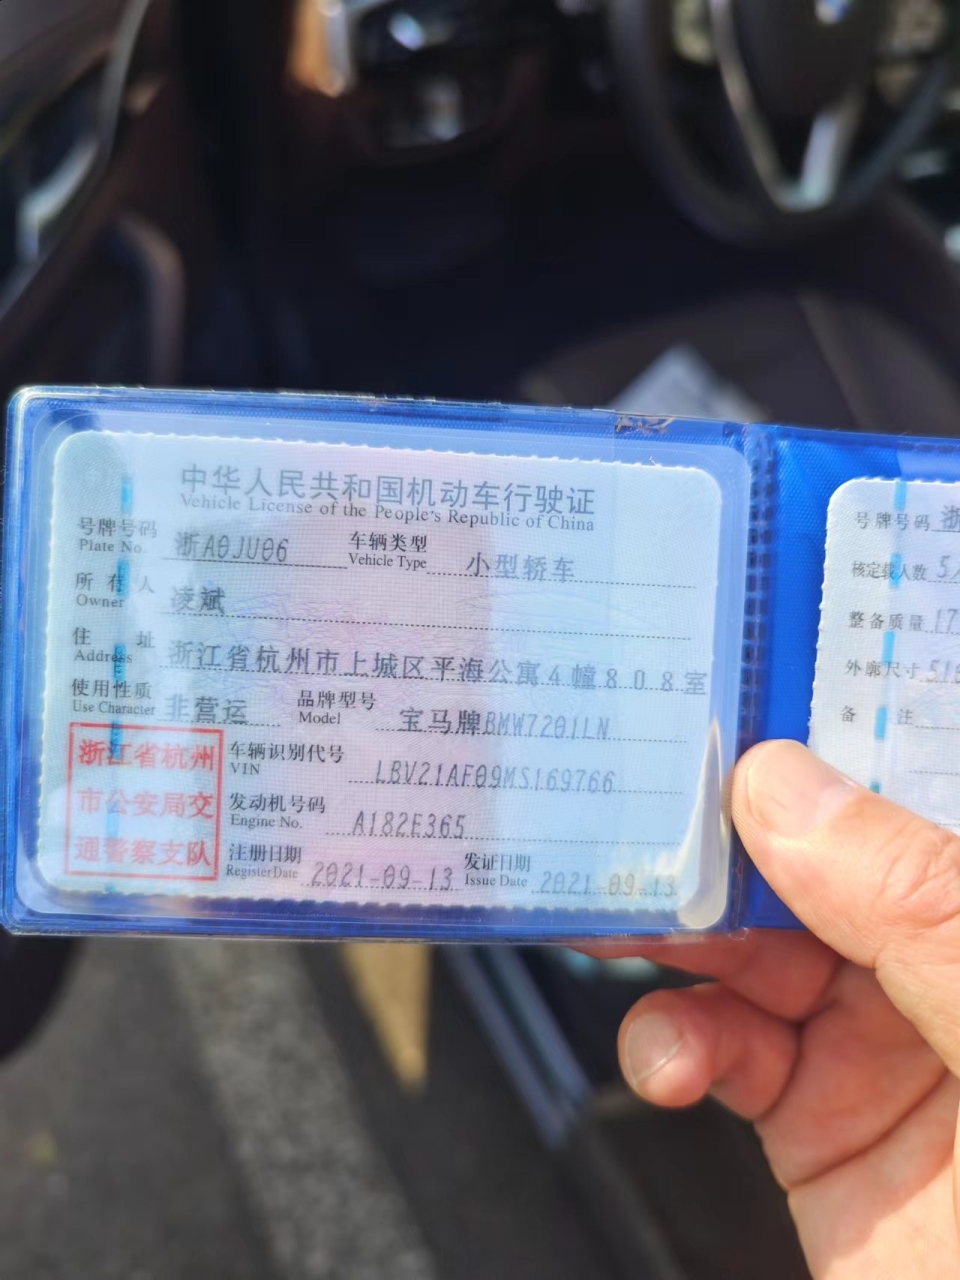 中华人民共和国机动车行驶证
Vehicle License of the People's Republic of China
号牌号码 浙A0JU06 车辆类型 小型轿车
Plate No. Vehicle Type
所有人 凌斌
Owner
住址 浙江省杭州市上城区平海公寓4幢808室
Address
使用性质 非营运 品牌型号 宝马牌BMW7201LN
Use Character Model
浙江省杭州
市公安局交
通警察支队
车辆识别代号 LBV21AF09MS169766
VIN
发动机号码 A182E365
Engine No.
注册日期 2021-09-13 发证日期 2021-09-13
Register Date Issue Date
号牌号码 浙
核定载人数 5
整备质量 17
外廓尺寸 516
备注